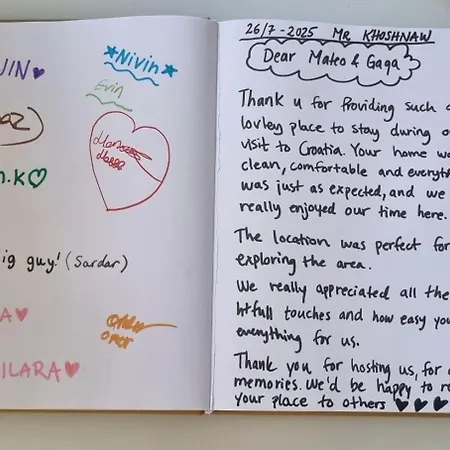 UIN
*Nivin*
Evin
n.K
ig guy! (Sardar)
A
ILARA
26/7-2025 MR KHOSHNAW
Dear Mateo & Gaga
Thank u for Providing such a
lovley place to stay during o
visit to Croatia. Your home wa
clean, comfortable and everyth
was just as expected, and we
really enjoyed our time here.
The location was perfect for
exploring the area.
We really appreciated all the
htfull touches and how easy you
everything for us.
Thank you for hosting us, for a
memories. We'd be happy to re
your place to others ♥♥♥